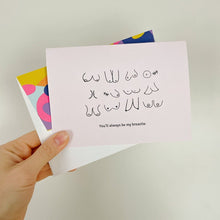 You'll always be my breastie